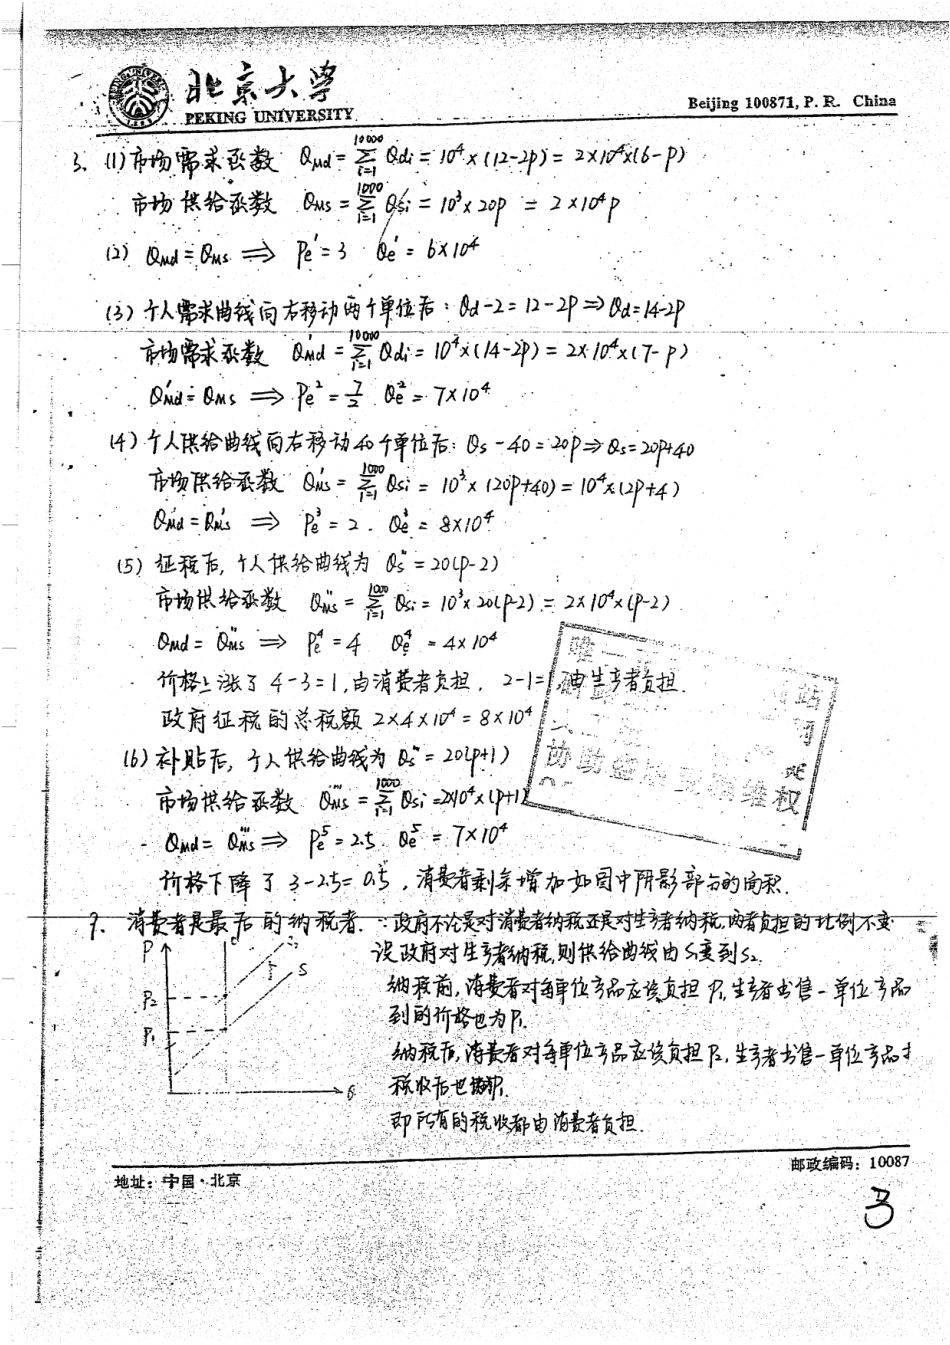 北京大学
PEKING UNIVERSITY
Beijing 100871, P. R. China
3、(1)市场需求函数 Qmd = Σ(i=1→10000) Qdi = 10⁴×(12-2p) = 2×10⁴×(6-p)
市场供给函数 Qms = Σ(i=1→1000) Qsi = 10³×20p = 2×10⁴p
(2) Qmd = Qms ⇒ Pe¹ = 3 Qe¹ = 6×10⁴
(3) 个人需求曲线向右移动两个单位后: Qd-2 = 12-2P ⇒ Qd = 14-2P
市场需求函数 Qḿd = Σ(i=1→10000) Qdi = 10⁴×(14-2P) = 2×10⁴×(7-P)
Qḿd = Qms ⇒ Pe² = 7/2 Qe² = 7×10⁴
(4) 个人供给曲线向右移动40个单位后: Qs-40 = 20p ⇒ Qs = 20p+40
市场供给函数 Qḿs = Σ(i=1→1000) Qsi = 10³×(20p+40) = 10⁴×(2p+4)
Qmd = Qḿs ⇒ Pe³ = 2. Qe³ = 8×10⁴
(5) 征税后,个人供给曲线为 Qs" = 20(p-2)
市场供给函数 Qms" = Σ(i=1→1000) Qsi = 10³×20(p-2) = 2×10⁴×(p-2)
Qmd = Qms" ⇒ Pe⁴ = 4 Qe⁴ = 4×10⁴
价格上涨了 4-3=1,由消费者负担, 2-1=1 由生产者负担.
政府征税的总税额 2×4×10⁴ = 8×10⁴
(6) 补贴后,个人供给曲线为 Qs‴ = 20(p+1)
市场供给函数 Qms‴ = Σ(i=1→1000) Qsi = 2×10⁴×(p+1)
Qmd = Qms‴ ⇒ Pe⁵ = 2.5. Qe⁵ = 7×10⁴
价格下降了 3-2.5 = 0.5,消费者剩余增加如图中阴影部分的面积.
9、消费者是最后的纳税者. ∵政府不论是对消费者纳税还是对生产者纳税,两者负担的比例不变
设政府对生产者纳税,则供给曲线由S₁变到S₂.
纳税前,消费者对每单位产品应该负担P₁,生产者出售一单位产品
到的价格也为P₁.
纳税后,消费者对每单位产品应该负担P₂,生产者出售一单位产品才
税收后也得P₁.
即所有的税收都由消费者负担.
P
d
S₂
S
P₂
P₁
Q
唯一
站
协助
维权
地址:中国·北京
邮政编码:10087
3